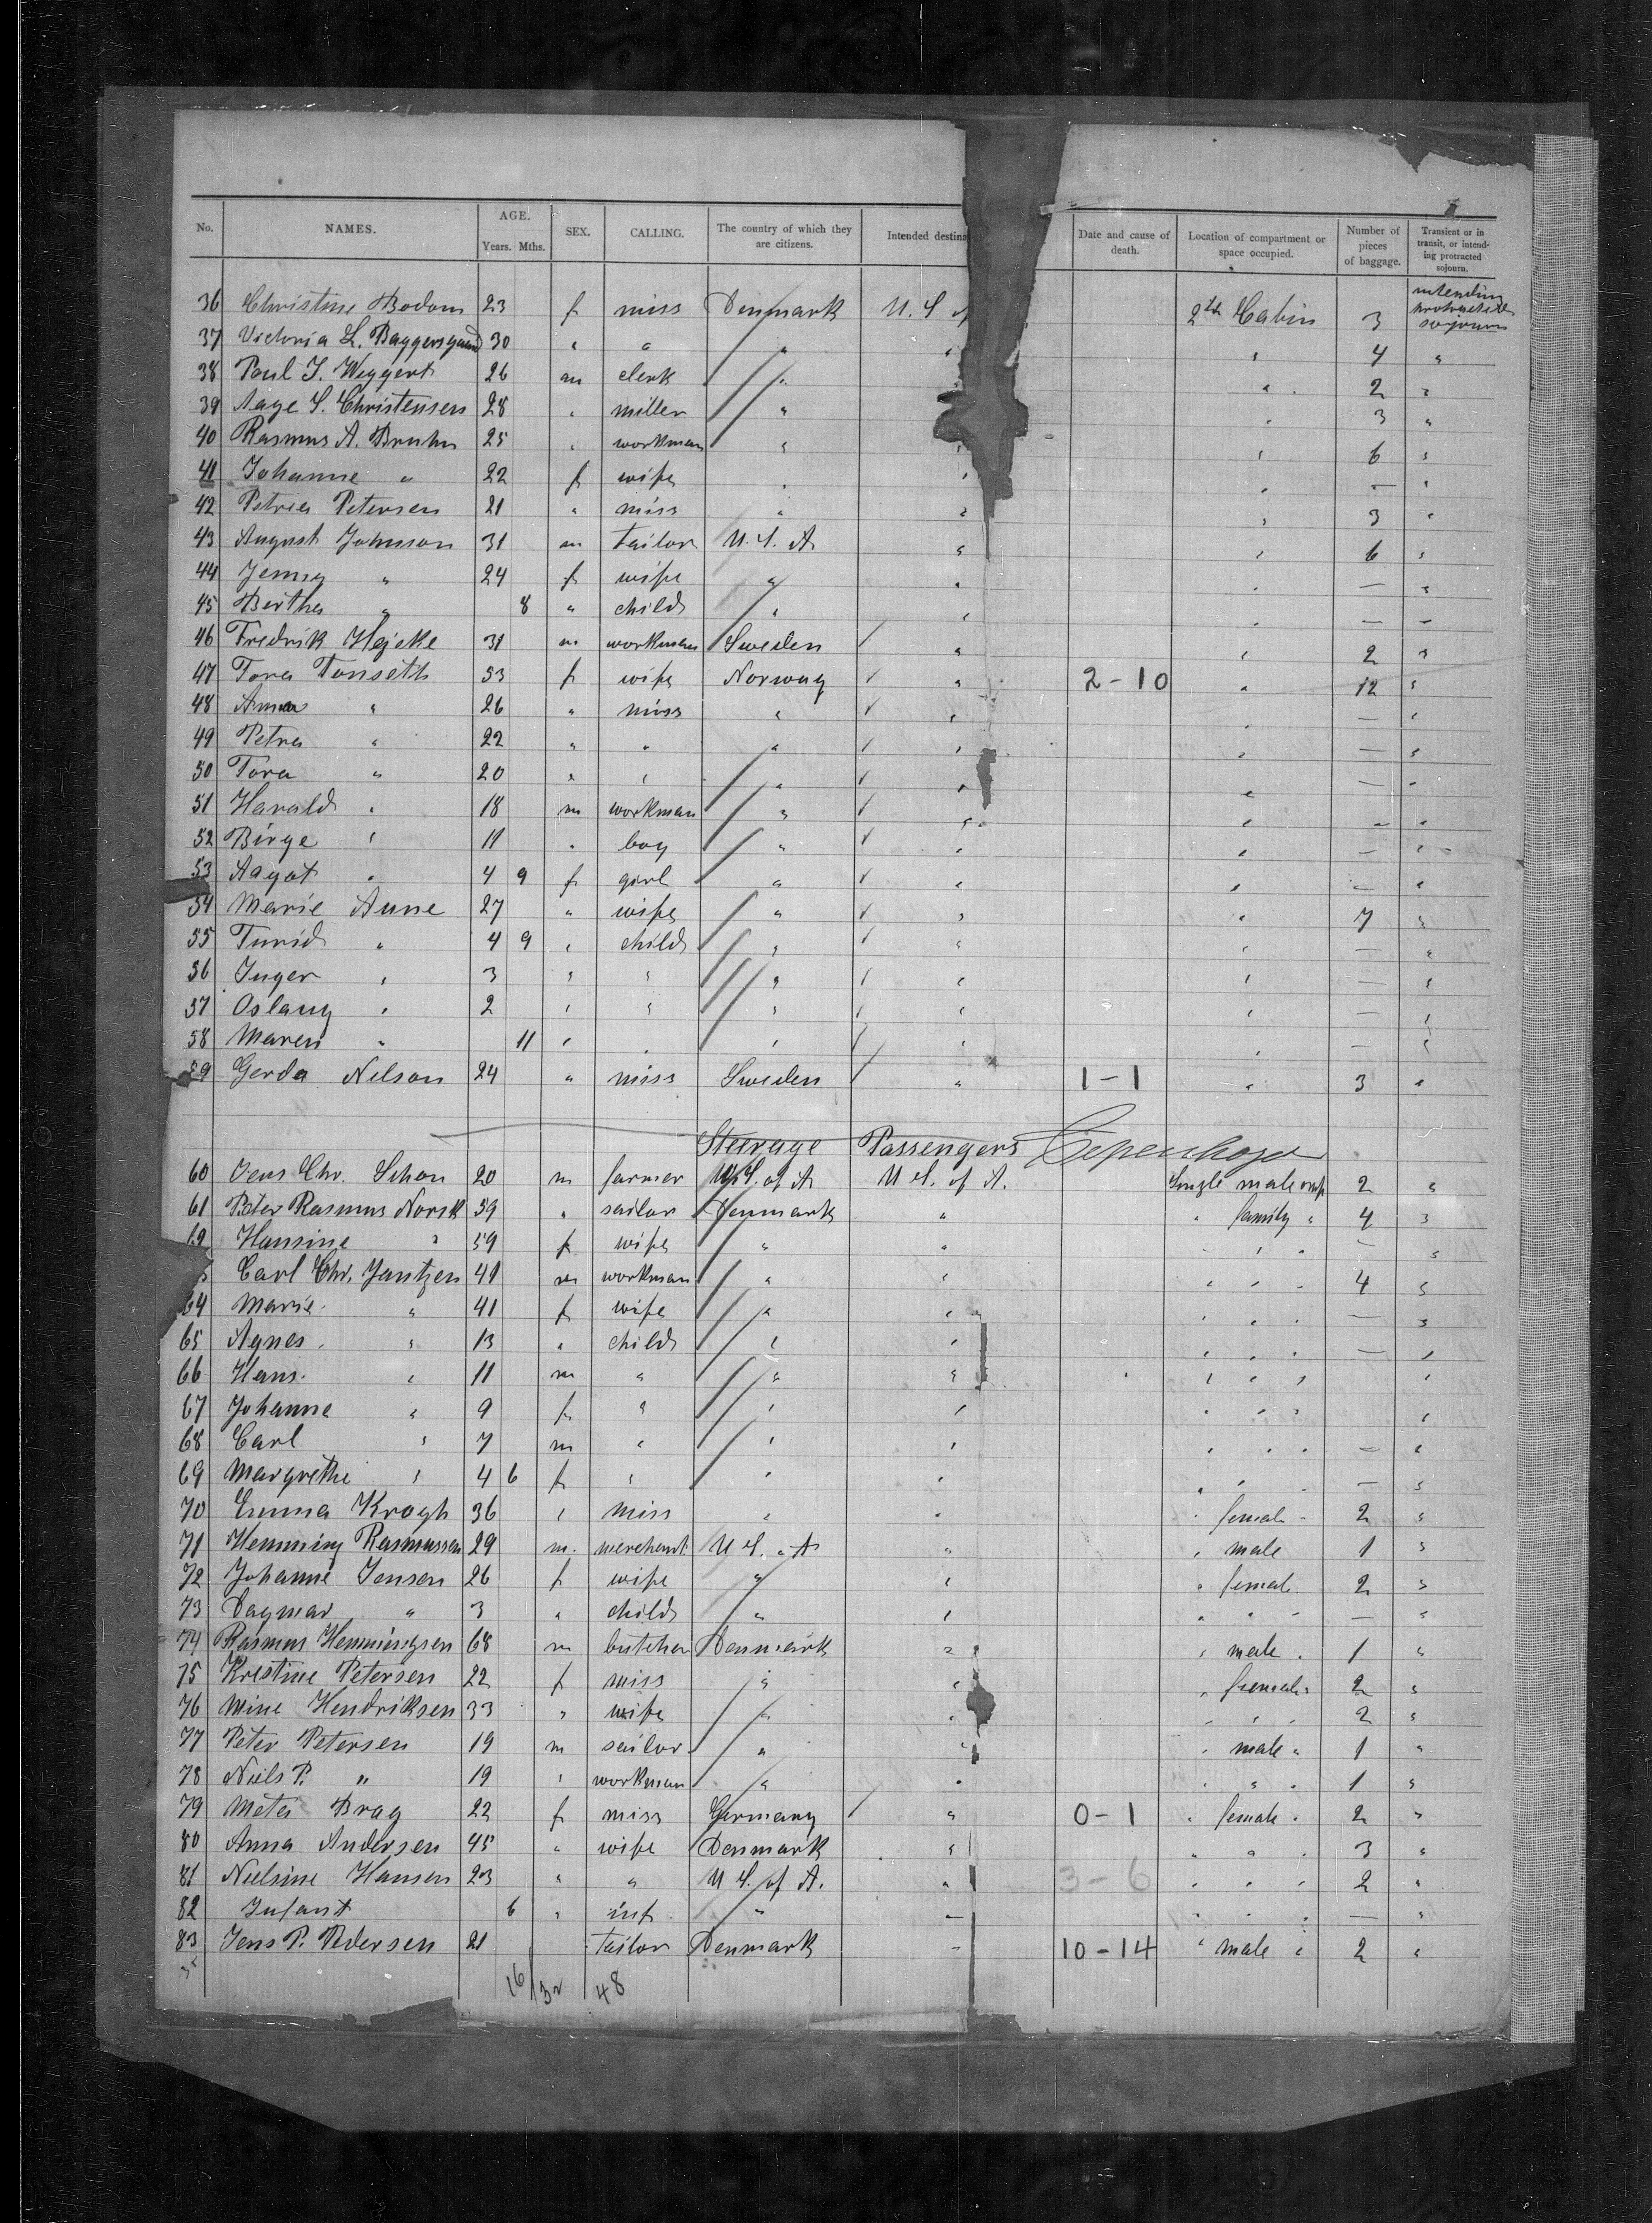 No. NAMES. AGE. Years. Mths. SEX. CALLING. The country of which they are citizens. Intended destina Date and cause of death. Location of compartment or space occupied. Number of pieces of baggage. Transient or in transit, or intending protracted sojourn.
36 Christine Bodom 23 f miss Denmark U. S. of 2nd Cabin 3 intending protracted sojourn
37 Victoria L. Baggersgaard 30 " " " " " 4 "
38 Poul J. Weggert 26 m clerk " " 2 "
39 Aage S. Christensen 28 " miller " " 3 "
40 Rasmus A. Bruhn 25 " workman " " " 6 "
41 Johanne " 22 f wife " " " — "
42 Petrea Petersen 21 " miss " " " 3 "
43 August Johnson 31 m tailor U. S. A " " 6 "
44 Jenny " 24 f wife " " " — "
45 Bertha " 8 " child " " " — "
46 Fredrik Hejeke 31 m workman Sweden " " 2 "
47 Tora Tonseth 53 f wife Norway " 2-10 " 12 "
48 Anna " 26 " miss " " " — "
49 Petra " 22 " " " " " — "
50 Tora " 20 " " " " " — "
51 Harald " 18 m workman " " " — "
52 Birge " 11 " boy " " " — "
53 Aagot " 4 9 f girl " " " — "
54 Marie Aune 27 " wife " " " 7 "
55 Turid " 4 9 " child " " " — "
56 Inger " 3 " " " " " — "
57 Oslaug " 2 " " " " " — "
58 Maren " 11 " " " " " — "
59 Gerda Nelson 24 " miss Sweden " 1-1 " 3 "
Steerage Passengers Copenhagen
60 Jens Chr. Schou 20 m farmer U.S. of A U. S. of A. Single male 2 "
61 Peter Rasmus Norsk 59 " sailor Denmark " " family " 4 "
62 Hansine " 59 f wife " " " " " — "
Carl Chr. Jantzen 41 m workman " " " " " 4 "
64 Marie " 41 f wife " " " " " — "
65 Agnes " 13 " child " " " " " — "
66 Hans " 11 m " " " " " " "
67 Johanne " 9 f " " " " " " "
68 Carl " 7 m " " " " " " — "
69 Margrethe " 4 6 f " " " " " — "
70 Emma Krogh 36 " miss " " " female " 2 "
71 Hemming Rasmussen 29 m. merchant U S. " A " " male 1 "
72 Johanne Jensen 26 f wife " " " female 2 "
73 Dagmar " 3 " child " " " " " — "
74 Rasmus Hemmingsen 68 m butcher Denmark " " male " 1 "
75 Kristine Petersen 22 f miss " " " female " 2 "
76 Mine Hendriksen 33 " wife " " " " " 2 "
77 Peter Petersen 19 m sailor " " " male " 1 "
78 Niels P. " 19 " workman " " " " " 1 "
79 Meta Brag 22 f miss Germany " 0-1 " female " 2 "
80 Anna Andersen 45 " wife Denmark " " " " 3 "
81 Nielsine Hansen 23 " " U S. of A. " 3-6 " " " 2 "
82 Infant 6 " inf " — " " " — "
83 Jens P. Pedersen 21 tailor Denmark — 10-14 " male " 2 "
16 48